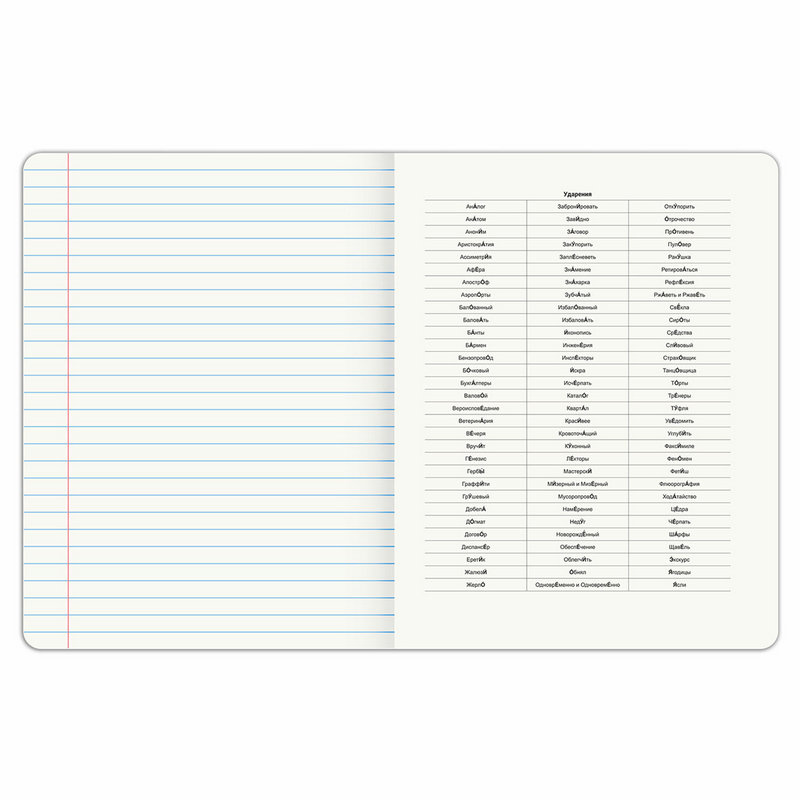 Ударения
АнАлог ЗабронИровать ОткУпорить
АнАтом ЗавИдно Отрочество
АнонИм ЗАговор ПрОтивень
АристокрАтия ЗакУпорить ПулОвер
АссиметрИя ЗаплЕсневеть РакУшка
АфЕра ЗнАмение РетировАться
АпострОф ЗнАхарка РефлЕксия
АэропОрты ЗубчАтый РжАветь и РжавЕть
БалОванный ИзбалОванный СвЁкла
БаловАть ИзбаловАть СирОты
БАнты Иконопись СрЕдства
БАрмен ИнженЕрия СлИвовый
БензопровОд ИнспЕкторы СтрахОвщик
БОчковый Искра ТанцОвщица
БухгАлтеры ИсчЕрпать ТОрты
ВаловОй КаталОг ТрЕнеры
ВероисповЕдание КвартАл ТУфля
ВетеринАрия КрасИвее УвЕдомить
ВЕчеря КровоточАщий УглубИть
ВручИт КУхонный ФаксИмиле
ГЕнезис ЛЕкторы ФенОмен
ГербЫ МастерскИ ФетИш
ГраффИти МИзерный и МизЕрный ФлюорогрАфия
ГрУшевый МусоропровОд ХодАтайство
ДобелА НамЕрение ЦЕдра
ДОлмат НедУг ЧЕрпать
ДоговОр НоворождЁнный ШАрфы
ДиспансЕр ОбеспЕчение ЩавЕль
ЕретИк ОблегчИть Экскурс
ЖалюзИ Обнял Ягодицы
ЖерлО ОдноврЕменно и ОдновремЕнно Ясли